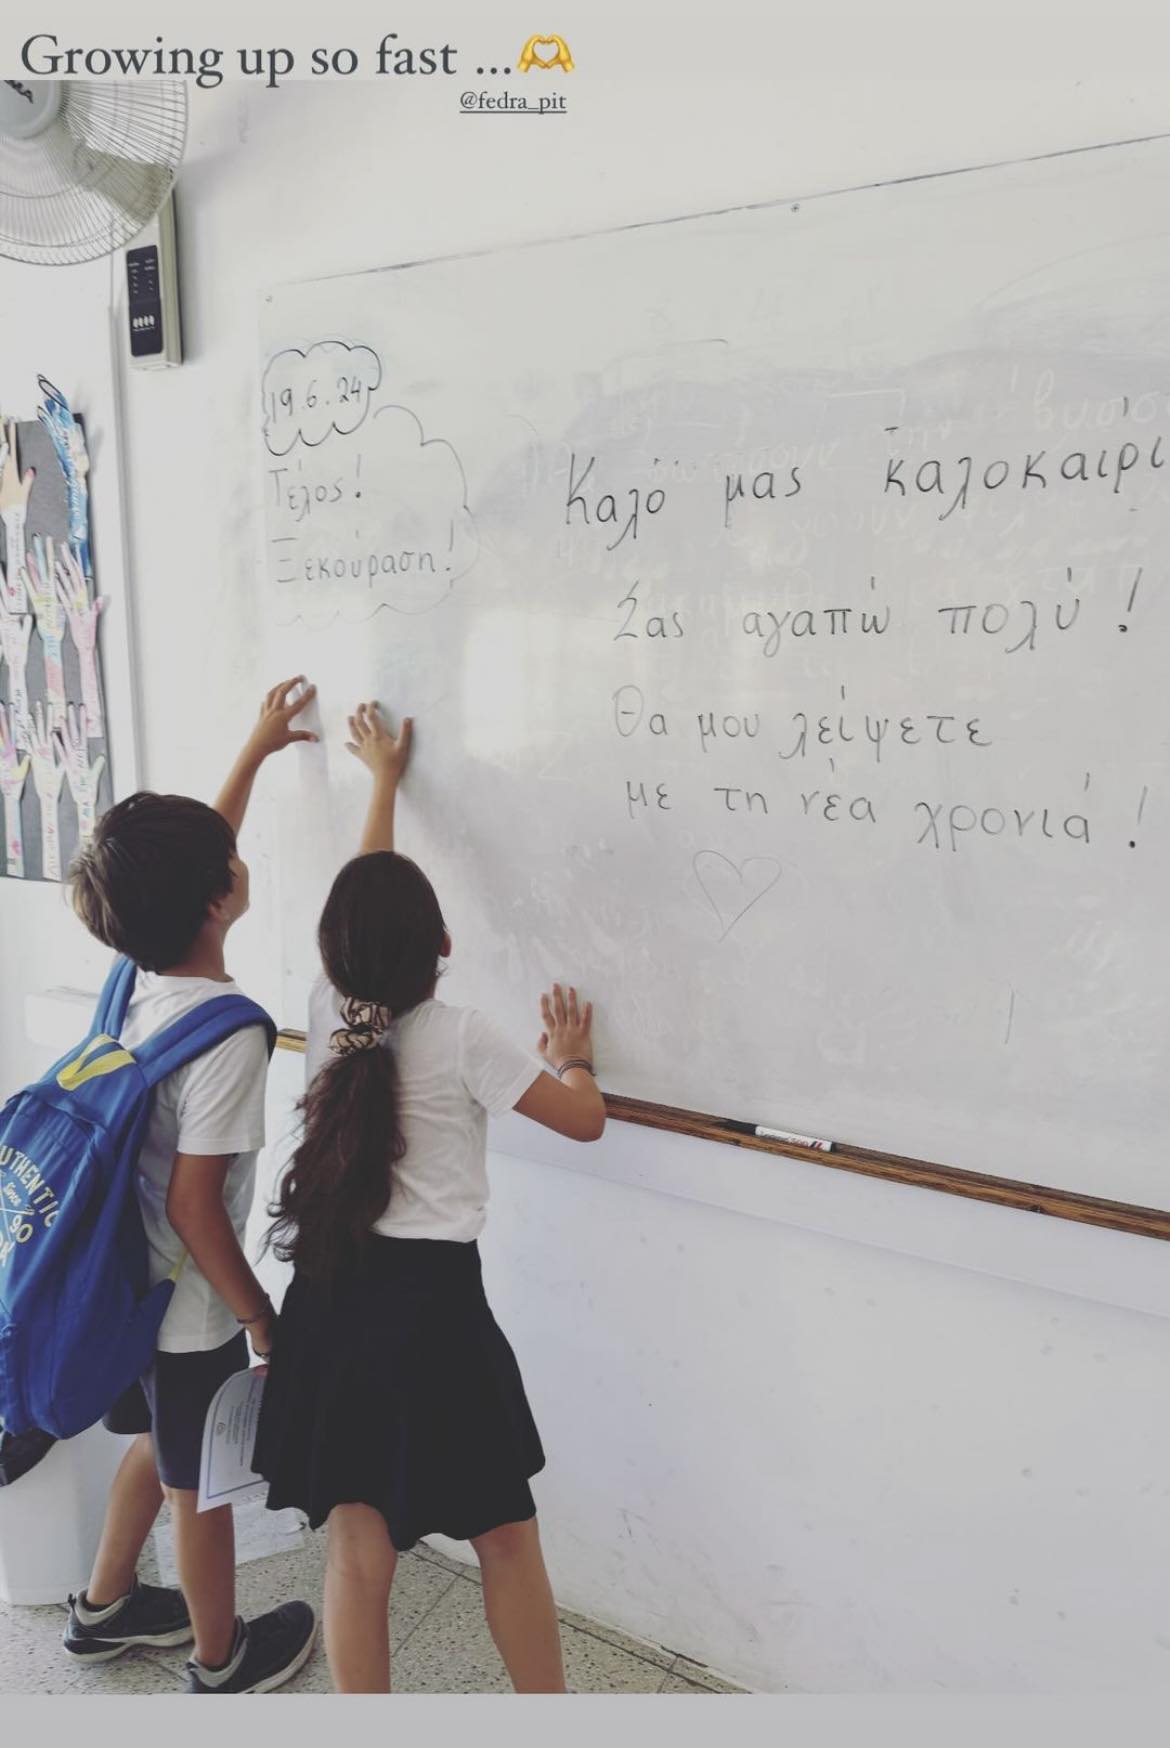 Growing up so fast ...🫶
@fedra_pit
19.6.24
Τέλος!
Ξεκούραση!
Καλό μας καλοκαίρι
Σας αγαπώ πολύ!
Θα μου λείψετε
με τη νέα χρονιά!
AUTHENTIC
Since
90